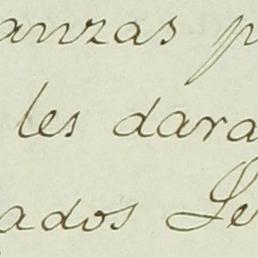 anzas p
les dara
ados Se